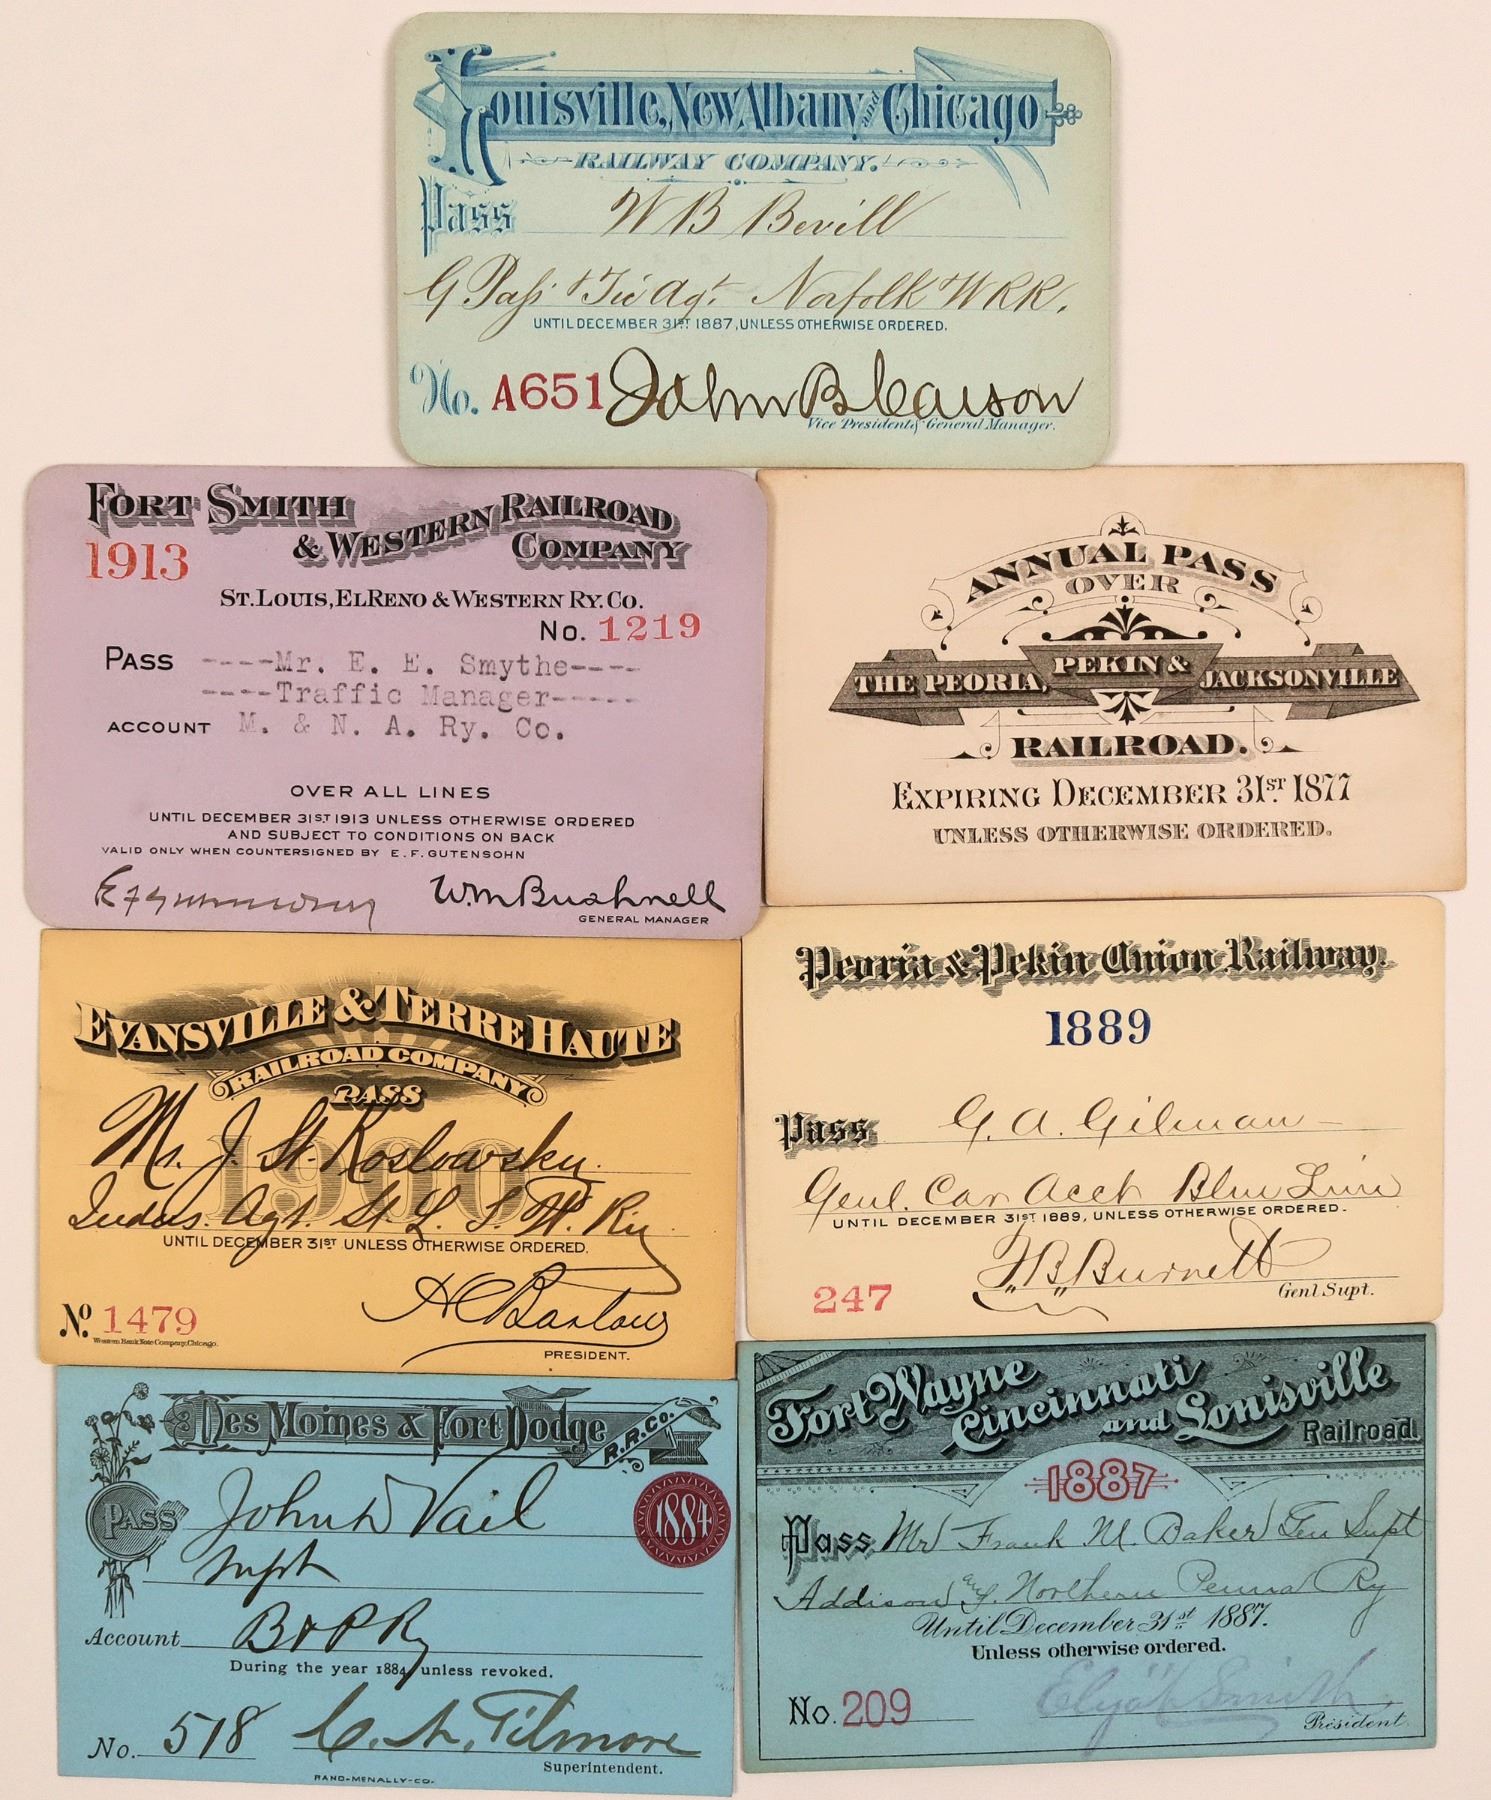 Louisville, New Albany and Chicago
RAILWAY COMPANY.
Pass W B Bevill
G. Pass & Tic Agt. Norfolk & W RR.
UNTIL DECEMBER 31ST 1887, UNLESS OTHERWISE ORDERED.
No. A651 John B Carson
Vice President & General Manager.
FORT SMITH
& WESTERN RAILROAD
COMPANY
1913
ST. LOUIS, EL RENO & WESTERN RY. CO.
No. 1219
PASS ----Mr. E. E. Smythe----
----Traffic Manager-----
ACCOUNT M. & N. A. Ry. Co.
OVER ALL LINES
UNTIL DECEMBER 31ST 1913 UNLESS OTHERWISE ORDERED
AND SUBJECT TO CONDITIONS ON BACK
VALID ONLY WHEN COUNTERSIGNED BY E. F. GUTENSOHN
Wm Bushnell
GENERAL MANAGER
ANNUAL PASS
OVER
THE PEORIA, PEKIN & JACKSONVILLE
RAILROAD.
EXPIRING DECEMBER 31ST 1877
UNLESS OTHERWISE ORDERED.
EVANSVILLE & TERRE HAUTE
RAILROAD COMPANY
PASS
1900
Mr. J. St. Koslowsky.
Indus. Agt. St. L. S. W. Ry
UNTIL DECEMBER 31ST UNLESS OTHERWISE ORDERED.
H C Barlow
No 1479
Western Bank Note Company, Chicago.
PRESIDENT.
Peoria & Pekin Union Railway.
1889
Pass G. A. Gilman
Genl. Car Acct Blue Line
UNTIL DECEMBER 31ST 1889, UNLESS OTHERWISE ORDERED.
Burnett
247
Genl Supt.
Des Moines & Fort Dodge
R.R.Co.
PASS John D Vail
1884
Supt
Account B & P Ry
During the year 1884 unless revoked.
No. 518 C. N. Gilmore
Superintendent.
RAND-MCNALLY-CO.
Fort Wayne
Cincinnati
and Louisville
Railroad
1887
Pass Mr Frank M. Baker Gen Supt
Addison and Northern Penna Ry
Until December 31st 1887.
Unless otherwise ordered.
Elijah Smith
No. 209
President.